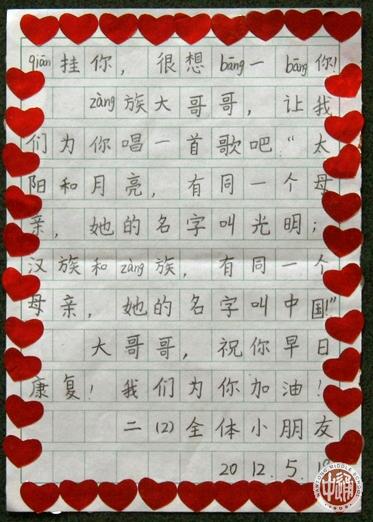 qiān挂你，很想bāng一bāng你!
zàng族大哥哥，让我
们为你唱一首歌吧“太
阳和月亮，有同一个母
亲，她的名字叫光明；
汉族和zàng族，有同一个
母亲，她的名字叫中国!”
大哥哥，祝你早日
康复！我们为你加油！
二(2)全体小朋友
2012.5.18